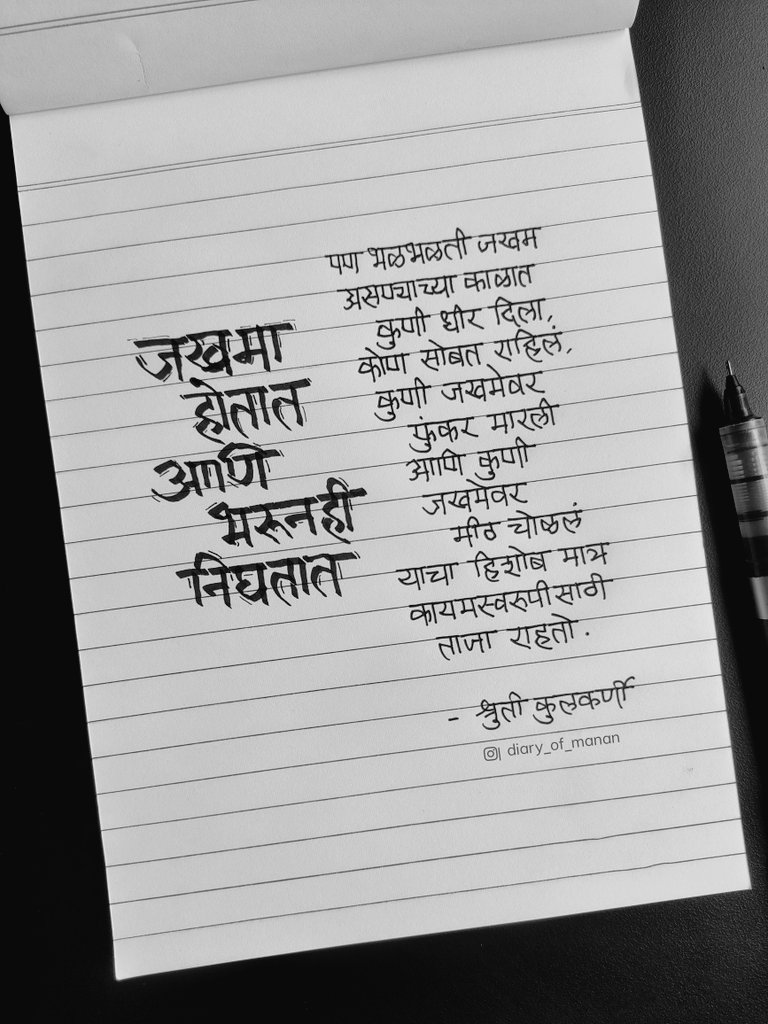 जखमा
होतात
आणि
भरूनही
निघतात
पण भळभळती जखम
असण्याच्या काळात
कुणी धीर दिला,
कोण सोबत राहिलं,
कुणी जखमेवर
फुंकर मारली
आणि कुणी
जखमेवर
मीठ चोळलं
याचा हिशोब मात्र
कायमस्वरुपीसाठी
ताजा राहतो.
- श्रुती कुलकर्णी
diary_of_manan